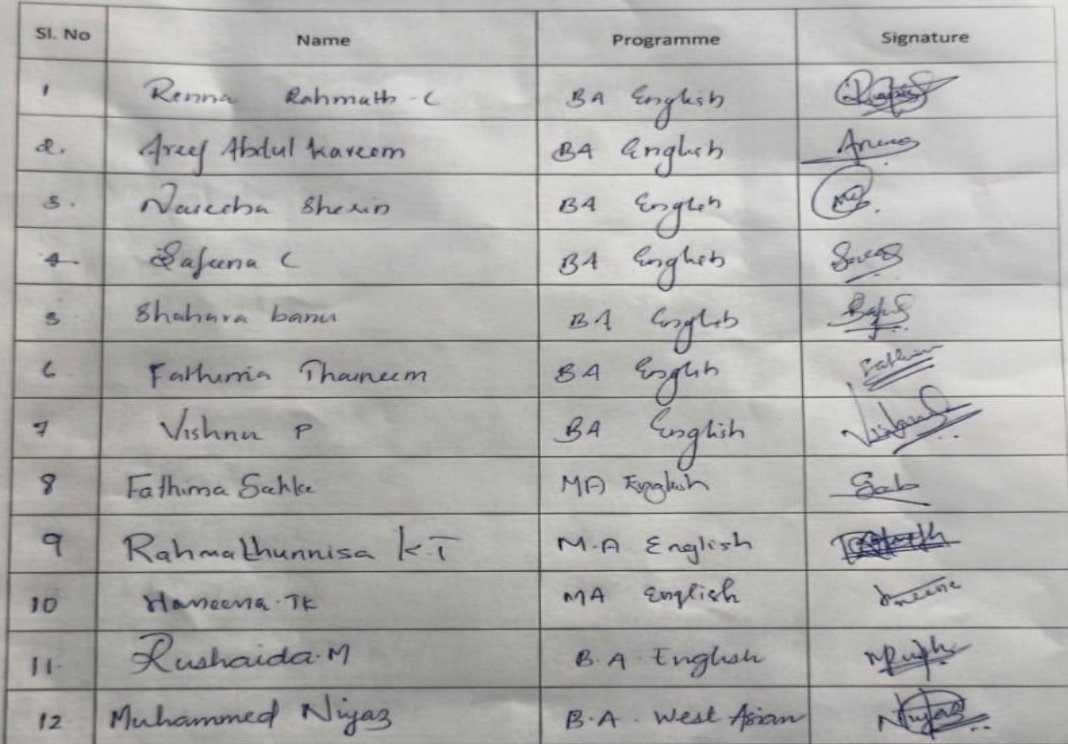 Sl. No Name Programme Signature
1 Renna Rahmath - C BA English
2. Areef Abdul kareem BA English
3. Naseeba Sherin BA English
4 Safeena C BA English
5 Shahara banu BA English
6 Fathima Thasneem BA English Fathima
7 Vishnu P BA English
8 Fathima Sahla MA English
9 Rahmathunnisa K.T M.A English
10 Haneena. TK MA English
11. Rushaida. M B.A. English
12 Muhammed Niyaz B.A. West Asian